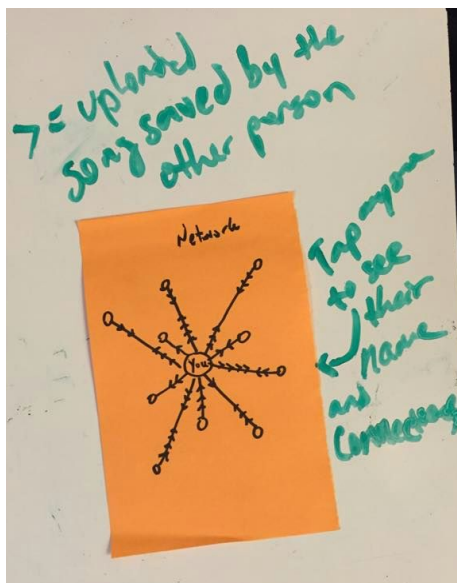 > = uploaded
song saved by the
other person
Network
You
Tap anyone
to see
their
name
and
Connections